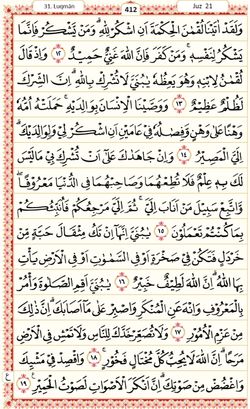 31. Luqmān 412 Juz 21
وَلَقَدْ اٰتَيْنَا لُقْمٰنَ الْحِكْمَةَ اَنِ اشْكُرْ لِلّٰهِ ؕ وَمَنْ يَّشْكُرْ فَاِنَّمَا
يَشْكُرُ لِنَفْسِهٖ ۚ وَمَنْ كَفَرَ فَاِنَّ اللّٰهَ غَنِيٌّ حَمِيْدٌ ﴿۱۲﴾ وَاِذْ قَالَ
لُقْمٰنُ لِابْنِهٖ وَهُوَ يَعِظُهٗ يٰبُنَيَّ لَا تُشْرِكْ بِاللّٰهِ ؕ اِنَّ الشِّرْكَ
لَظُلْمٌ عَظِيْمٌ ﴿۱۳﴾ وَوَصَّيْنَا الْاِنْسَانَ بِوَالِدَيْهِ ۚ حَمَلَتْهُ اُمُّهٗ
وَهْنًا عَلٰى وَهْنٍ وَّفِصَالُهٗ فِيْ عَامَيْنِ اَنِ اشْكُرْ لِيْ وَلِوَالِدَيْكَ ؕ
اِلَيَّ الْمَصِيْرُ ﴿۱۴﴾ وَاِنْ جَاهَدٰكَ عَلٰٓى اَنْ تُشْرِكَ بِيْ مَا لَيْسَ
لَكَ بِهٖ عِلْمٌ فَلَا تُطِعْهُمَا وَصَاحِبْهُمَا فِي الدُّنْيَا مَعْرُوْفًا ؗ
وَّاتَّبِعْ سَبِيْلَ مَنْ اَنَابَ اِلَيَّ ۚ ثُمَّ اِلَيَّ مَرْجِعُكُمْ فَاُنَبِّئُكُمْ
بِمَا كُنْتُمْ تَعْمَلُوْنَ ﴿۱۵﴾ يٰبُنَيَّ اِنَّهَاۤ اِنْ تَكُ مِثْقَالَ حَبَّةٍ مِّنْ
خَرْدَلٍ فَتَكُنْ فِيْ صَخْرَةٍ اَوْ فِي السَّمٰوٰتِ اَوْ فِي الْاَرْضِ يَاْتِ
بِهَا اللّٰهُ ؕ اِنَّ اللّٰهَ لَطِيْفٌ خَبِيْرٌ ﴿۱۶﴾ يٰبُنَيَّ اَقِمِ الصَّلٰوةَ وَاْمُرْ
بِالْمَعْرُوْفِ وَانْهَ عَنِ الْمُنْكَرِ وَاصْبِرْ عَلٰى مَاۤ اَصَابَكَ ؕ اِنَّ ذٰلِكَ
مِنْ عَزْمِ الْاُمُوْرِ ﴿۱۷﴾ وَلَا تُصَعِّرْ خَدَّكَ لِلنَّاسِ وَلَا تَمْشِ فِي الْاَرْضِ
مَرَحًا ؕ اِنَّ اللّٰهَ لَا يُحِبُّ كُلَّ مُخْتَالٍ فَخُوْرٍ ﴿۱۸﴾ وَاقْصِدْ فِيْ مَشْيِكَ
وَاغْضُضْ مِنْ صَوْتِكَ ؕ اِنَّ اَنْكَرَ الْاَصْوَاتِ لَصَوْتُ الْحَمِيْرِ ﴿۱۹﴾